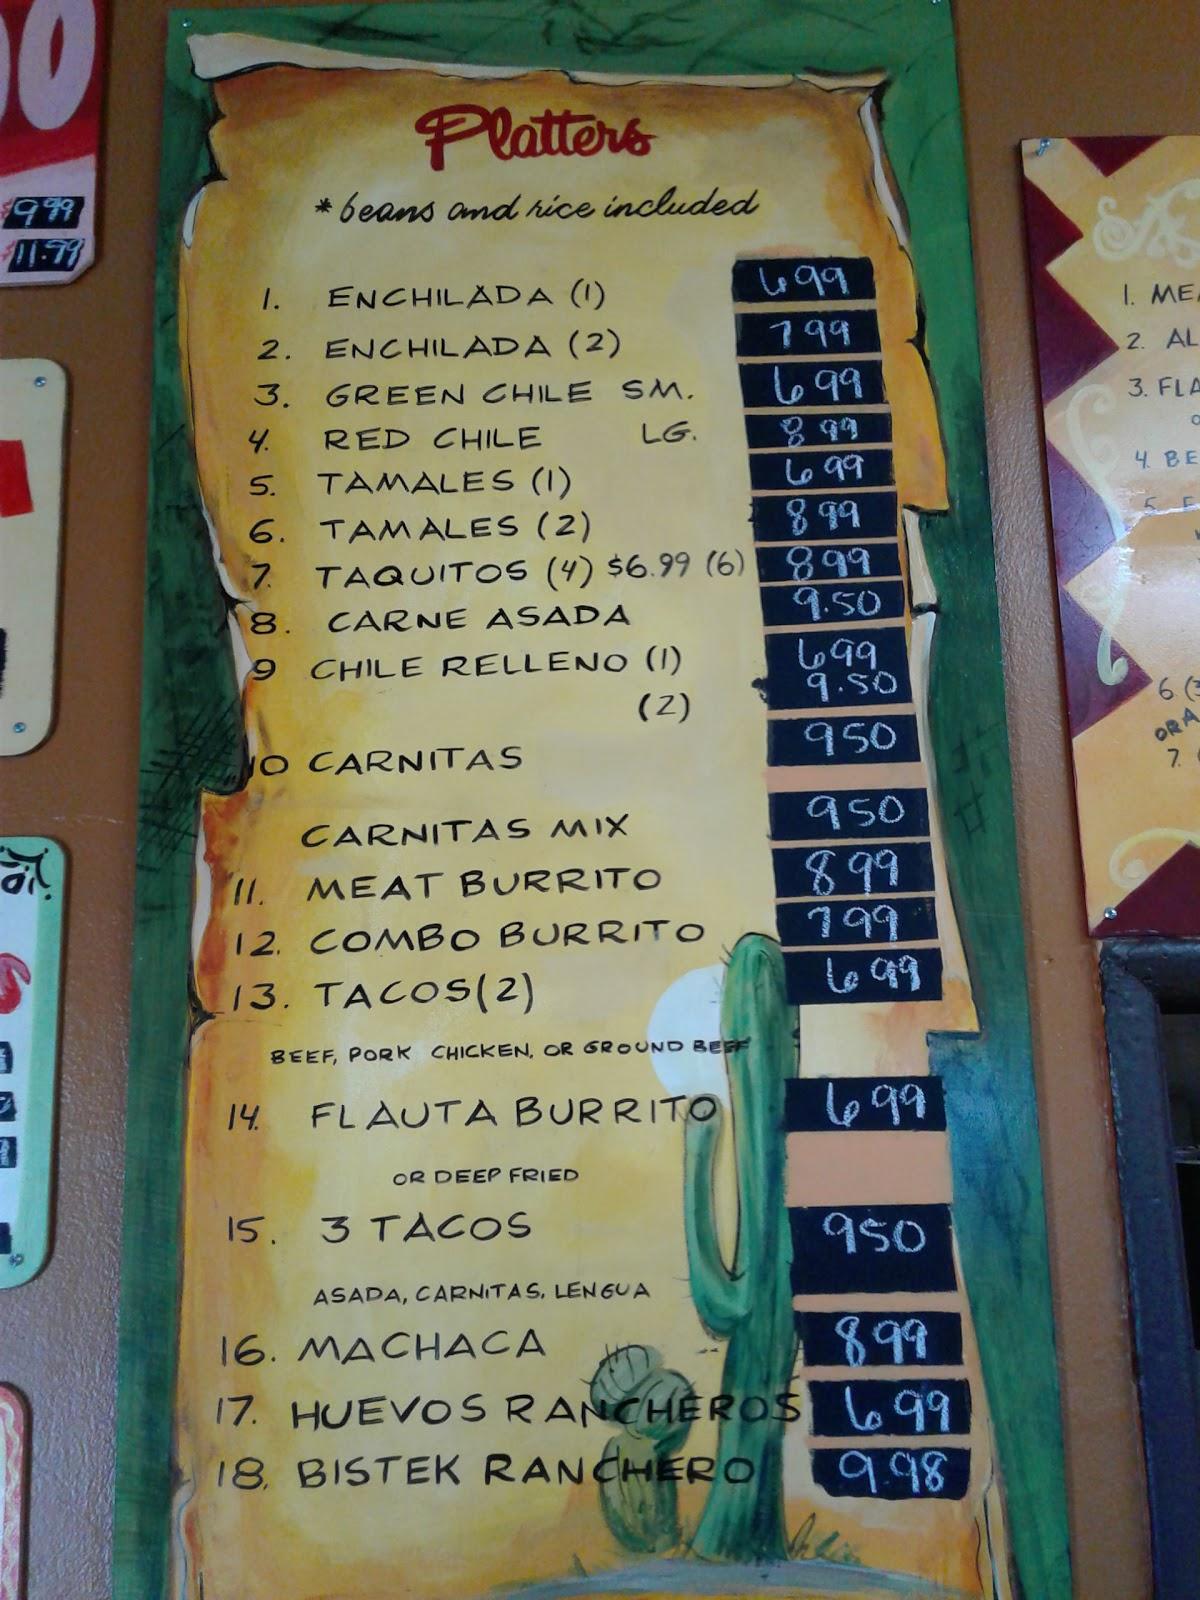 Platters
* beans and rice included
1. ENCHILADA (1) 699
2. ENCHILADA (2) 799
3. GREEN CHILE SM. 699
4. RED CHILE LG. 899
5. TAMALES (1) 699
6. TAMALES (2) 899
7. TAQUITOS (4) $6.99 (6) 899
8. CARNE ASADA 9.50
9 CHILE RELLENO (1) 699
(2) 9.50
10 CARNITAS 950
CARNITAS MIX 950
11. MEAT BURRITO 899
12. COMBO BURRITO 799
13. TACOS(2) 699
BEEF, PORK CHICKEN, OR GROUND BEEF
14. FLAUTA BURRITO 699
OR DEEP FRIED
15. 3 TACOS 950
ASADA, CARNITAS, LENGUA
16. MACHACA 899
17. HUEVOS RANCHEROS 699
18. BISTEK RANCHERO 9.98
9.99
11.99
1. ME
2. AL
3. FLA
4. BE
5.
6. (3
ORA
7.